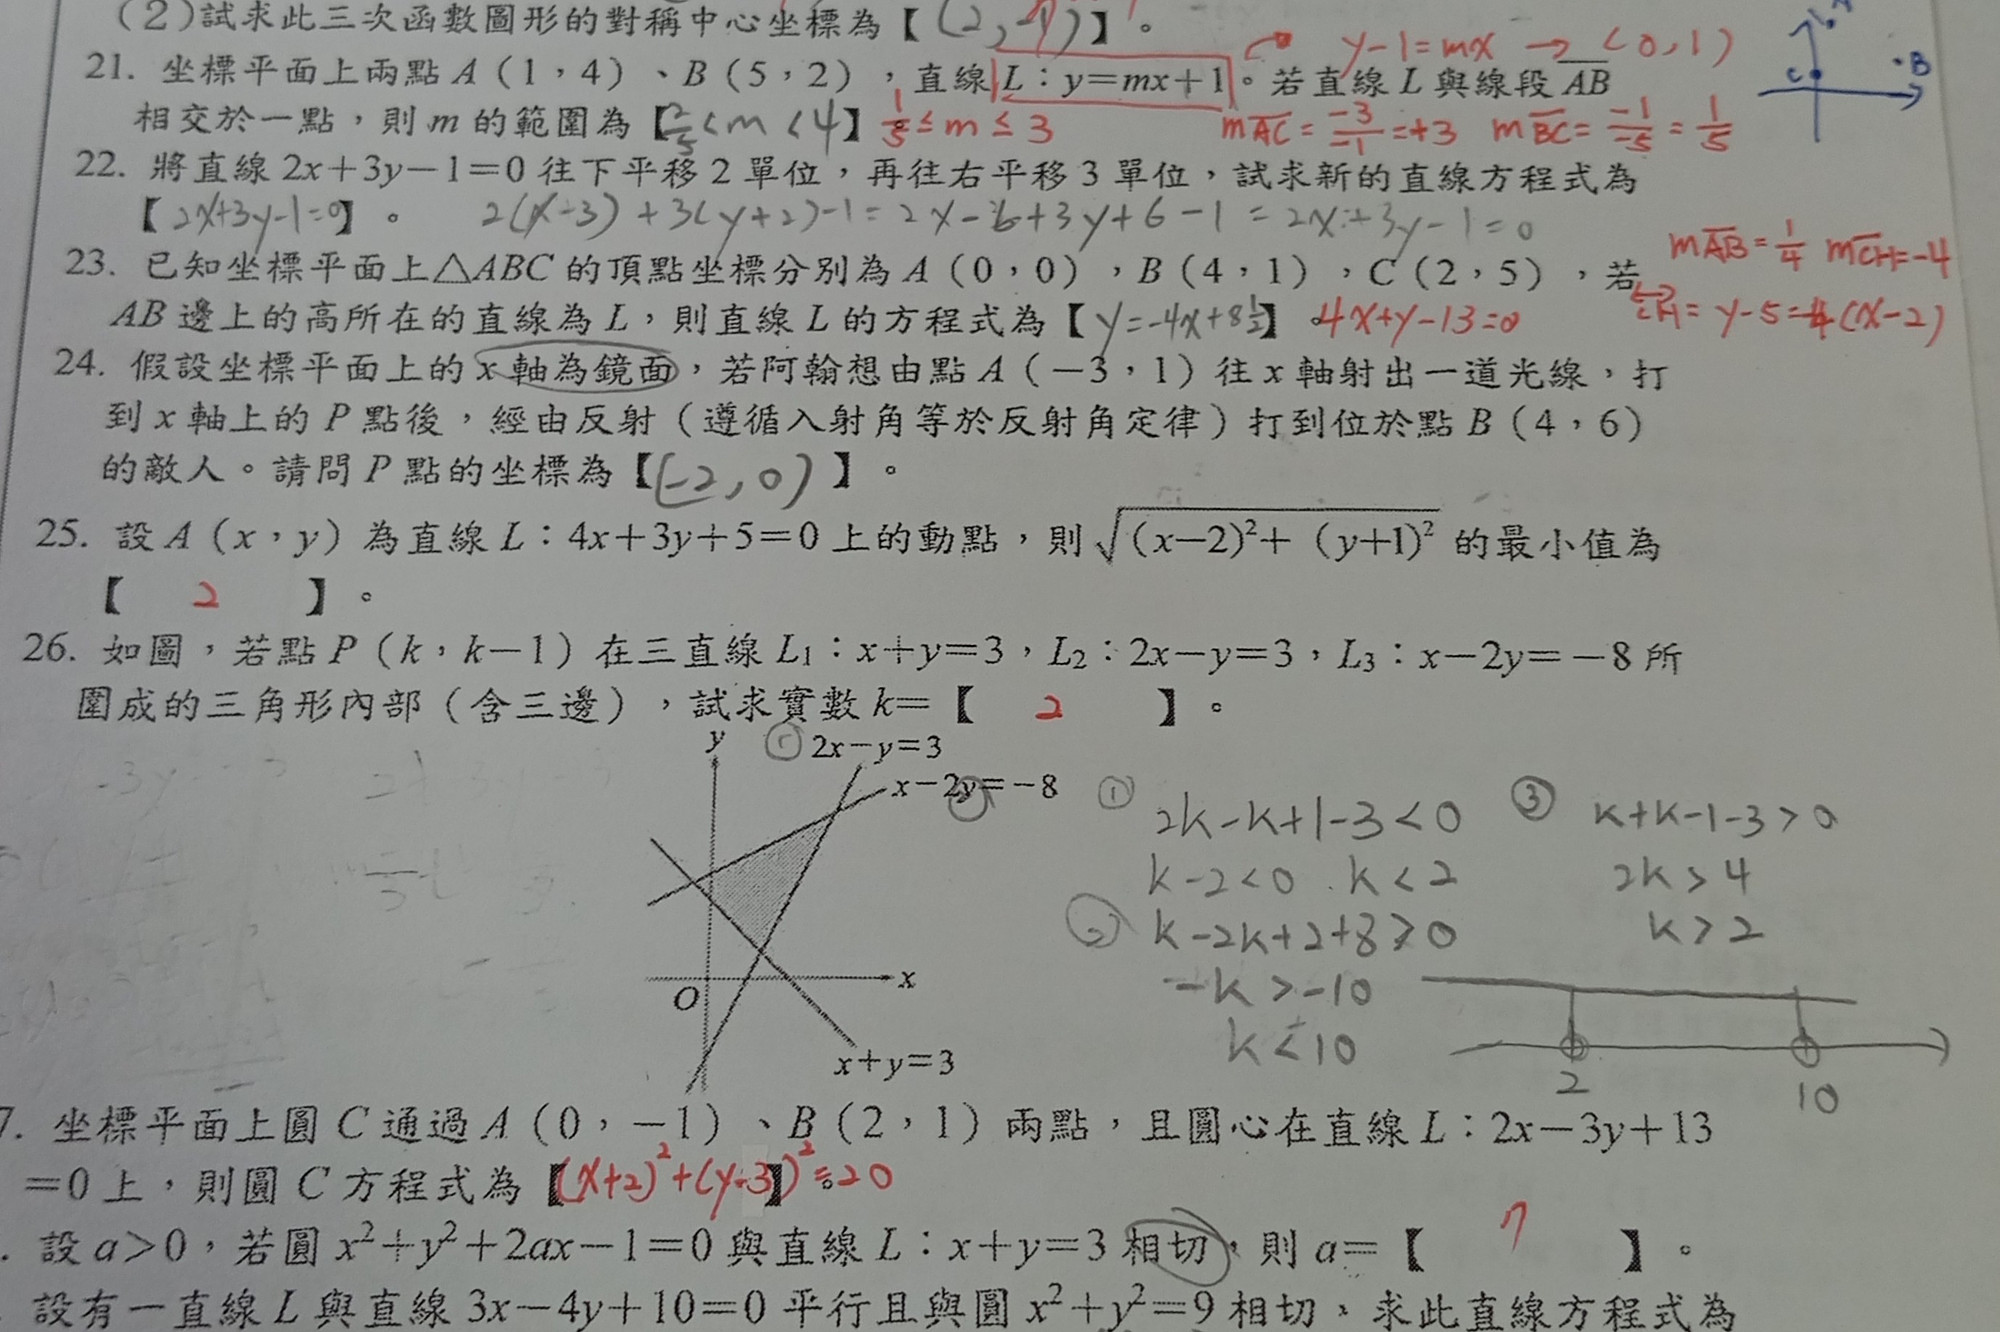 (2)試求此三次函數圖形的對稱中心坐標為【(2,-7)】。
y-1=mx → (0,1)
21. 坐標平面上兩點 A（1，4）、B（5，2），直線 L：y=mx+1。若直線 L 與線段 AB
C B
相交於一點，則 m 的範圍為【2/5<m<4】 1/5≤m≤3 mAC=-3/-1=+3 mBC=-1/-5=1/5
22. 將直線 2x+3y-1=0 往下平移 2 單位，再往右平移 3 單位，試求新的直線方程式為
【2x+3y-1=0】。 2(x-3)+3(y+2)-1=2x-6+3y+6-1=2x+3y-1=0
mAB=1/4 mCH=-4
23. 已知坐標平面上△ABC 的頂點坐標分別為 A（0，0），B（4，1），C（2，5），若
AB 邊上的高所在的直線為 L，則直線 L 的方程式為【y=-4x+8½】。4x+y-13=0 CH=y-5=-4(x-2)
24. 假設坐標平面上的 x 軸為鏡面，若阿翰想由點 A（-3，1）往 x 軸射出一道光線，打
到 x 軸上的 P 點後，經由反射（遵循入射角等於反射角定律）打到位於點 B（4，6）
的敵人。請問 P 點的坐標為【(-2,0)】。
25. 設 A（x，y）為直線 L：4x+3y+5=0 上的動點，則√(x-2)²+（y+1)² 的最小值為
【 2 】。
26. 如圖，若點 P（k，k-1）在三直線 L₁：x+y=3，L₂：2x-y=3，L₃：x-2y=-8 所
圍成的三角形內部（含三邊），試求實數 k=【 2 】。
y ① 2x-y=3
x-2y=-8
x
O
x+y=3
① 2k-k+1-3<0
k-2<0 k<2
② k-2k+2+8>0
-k>-10
k<10
③ k+k-1-3>0
2k>4
k>2
2 10
7. 坐標平面上圓 C 通過 A（0，-1）、B（2，1）兩點，且圓心在直線 L：2x-3y+13
=0 上，則圓 C 方程式為【(x+2)²+(y-3)²=20】。
. 設 a>0，若圓 x²+y²+2ax-1=0 與直線 L：x+y=3 相切，則 a=【 7 】。
設有一直線 L 與直線 3x-4y+10=0 平行且與圓 x²+y²=9 相切，求此直線方程式為